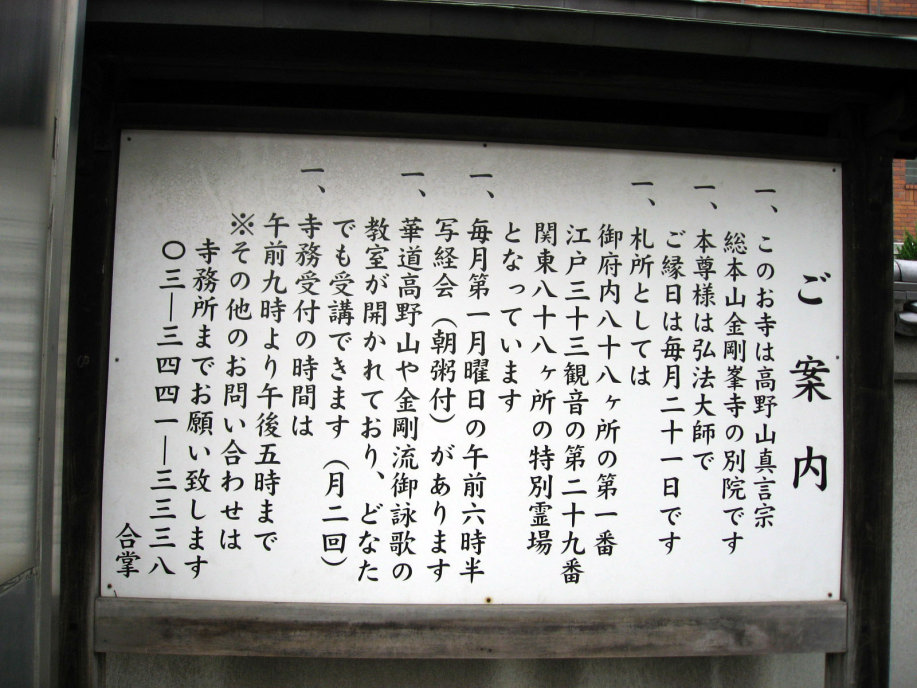 ご案内
一、このお寺は高野山真言宗
総本山金剛峯寺の別院です
一、本尊様は弘法大師で
ご縁日は毎月二十一日です
一、札所としては
御府内八十八ヶ所の第一番
江戸三十三観音の第二十九番
関東八十八ヶ所の特別霊場
となっています
一、毎月第一月曜日の午前六時半
写経会(朝粥付)があります
一、華道高野山や金剛流御詠歌の
教室が開かれており、どなた
でも受講できます(月二回)
一、寺務受付の時間は
午前九時より午後五時まで
※その他のお問い合わせは
寺務所までお願い致します
〇三―三四四一―三三三八
合掌